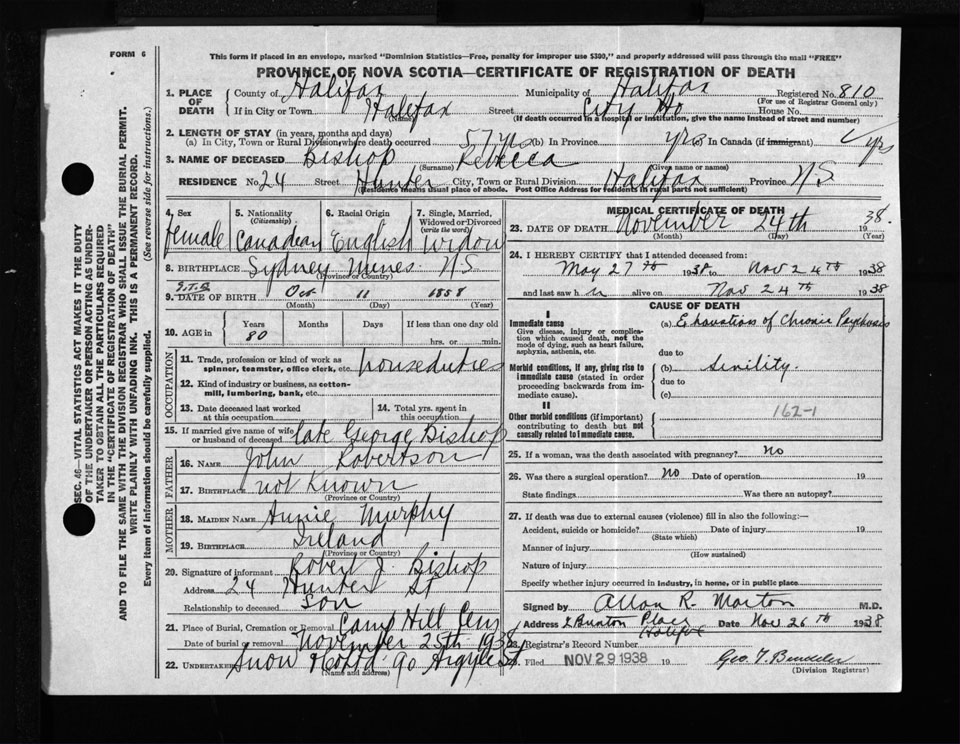 FORM 6
This form if placed in an envelope, marked "Dominion Statistics—Free, penalty for improper use $300," and properly addressed will pass through the mail "FREE"
PROVINCE OF NOVA SCOTIA—CERTIFICATE OF REGISTRATION OF DEATH
1. PLACE OF DEATH County of Halifax Municipality of Halifax Registered No. 810
(For use of Registrar General only)
If in City or Town Halifax Street City Ho House No.
(Name) (If death occurred in a hospital or institution, give the name instead of street and number)
2. LENGTH OF STAY (in years, months and days)
(a) In City, Town or Rural Division where death occurred 57 yrs (b) In Province yrs In Canada (if immigrant) yrs
3. NAME OF DECEASED Bishop Rebecca
(Surname)
RESIDENCE No. 24 Street Hunter City, Town or Rural Division Halifax Province N.S.
(Residence means usual place of abode. Post Office Address for residents in rural parts not sufficient)
4. Sex female
5. Nationality (Citizenship) Canadian
6. Racial Origin English
7. Single, Married, Widowed or Divorced (write the word) Widow
8. BIRTHPLACE Sydney Mines N.S.
(Province or Country)
9. DATE OF BIRTH Oct 11 1858
(Month) (Day) (Year)
10. AGE in Years Months Days If less than one day old
80 hrs. or min.
OCCUPATION
11. Trade, profession or kind of work as spinner, teamster, office clerk, etc. housedutees
12. Kind of industry or business, as cotton-mill, lumbering, bank, etc.
13. Date deceased last worked at this occupation
14. Total yrs. spent in this occupation
15. If married give name of wife or husband of deceased late George Bishop
FATHER
16. NAME John Robertson
17. BIRTHPLACE not known
(Province or Country)
MOTHER
18. MAIDEN NAME Annie Murphy
19. BIRTHPLACE Ireland
(Province or Country)
20. Signature of informant Robert J. Bishop
Address 24 Hunter St
Relationship to deceased son
21. Place of Burial, Cremation or Removal Camp Hill Cem
Date of burial or removal November 25th 1938
22. Undertaker Snow 90 Argyle St.
(Name and address)
MEDICAL CERTIFICATE OF DEATH
23. DATE OF DEATH November 24th 1938.
(Month) (Day) (Year)
24. I HEREBY CERTIFY that I attended deceased from:
May 27th 1938 to Nov 24th 1938
and last saw h alive on Nov 24th 1938
CAUSE OF DEATH
I
Immediate cause (a) Exhaustion of Chronic Psychosis
Give disease, injury or complication which caused death, not the mode of dying, such as heart failure, asphyxia, asthenia, etc.
due to
Morbid conditions, if any, giving rise to immediate cause (stated in order proceeding backwards from immediate cause).
(b) Senility.
due to
(c)
II
162-1
Other morbid conditions (if important) contributing to death but not causally related to immediate cause.
25. If a woman, was the death associated with pregnancy? No
26. Was there a surgical operation? No Date of operation 19
State findings Was there an autopsy?
27. If death was due to external causes (violence) fill in also the following:—
Accident, suicide or homicide? Date of injury 19
(State which)
Manner of injury
(How sustained)
Nature of injury
Specify whether injury occurred in industry, in home, or in public place
Signed by Allan R. Morton M.D.
Address 2 Place Halifax Date Nov 26th 1938
28. Registrar's Record Number
Filed NOV 29 1938 19
(Division Registrar)
SEC. 46—VITAL STATISTICS ACT MAKES IT THE DUTY
OF THE UNDERTAKER OR PERSON ACTING AS UNDER-
TAKER TO OBTAIN ALL THE PARTICULARS REQUIRED
IN THE "CERTIFICATE OF REGISTRATION OF DEATH"
AND TO FILE THE SAME WITH THE DIVISION REGISTRAR WHO SHALL ISSUE THE BURIAL PERMIT.
WRITE PLAINLY WITH UNFADING INK. THIS IS A PERMANENT RECORD.
Every item of information should be carefully supplied. (See reverse side for instructions.)